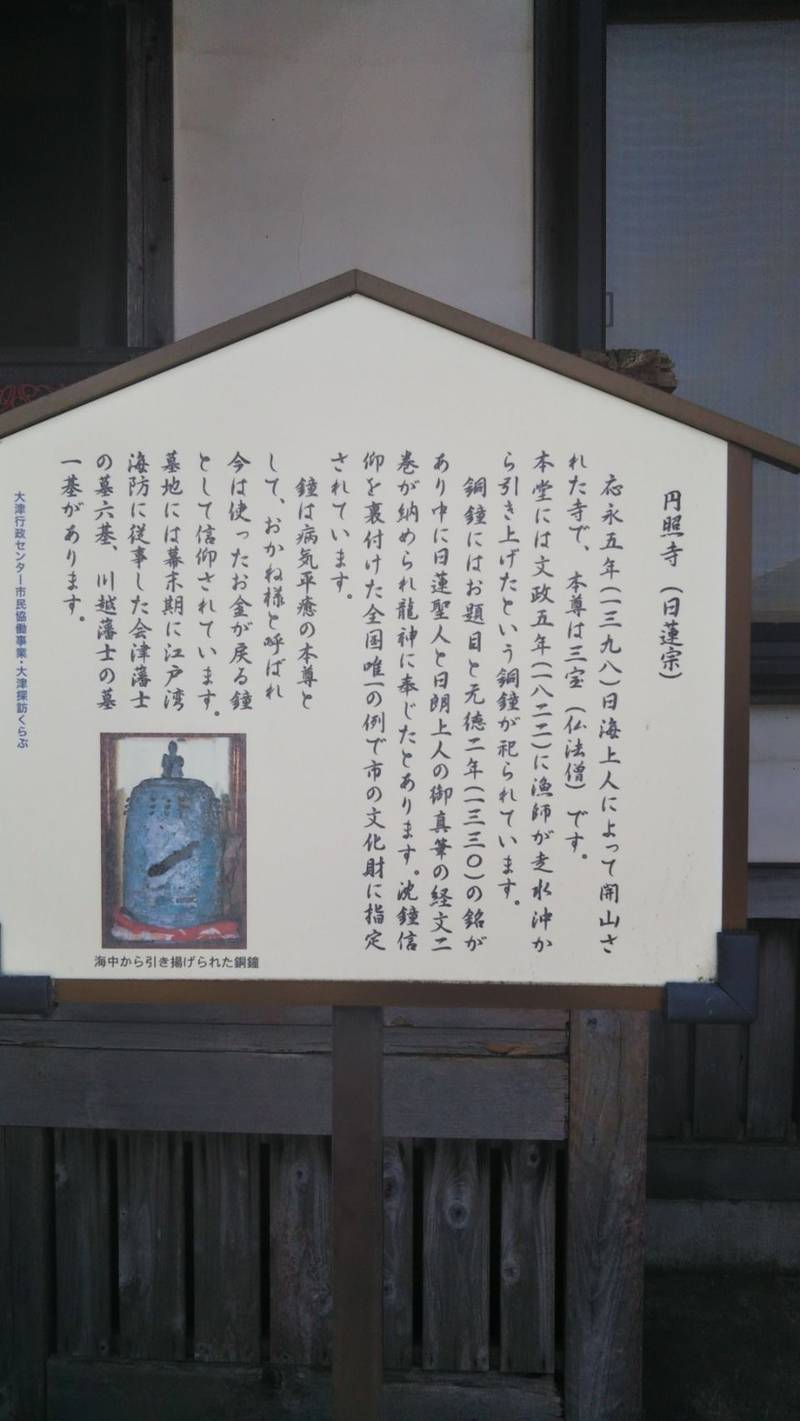 円照寺（日蓮宗）
応永五年(一三九八)日海上人によって開山さ
れた寺で、本尊は三宝（仏法僧）です。
本堂には文政五年(一八二二)に漁師が走水沖か
ら引き上げたという銅鐘が祀られています。
銅鐘にはお題目と元徳二年(一三三〇)の銘が
あり中に日蓮聖人と日朗上人の御真筆の経文二
巻が納められ龍神に奉じたとあります。沈鐘信
仰を裏付けた全国唯一の例で市の文化財に指定
されています。
鐘は病気平癒の本尊と
して、おかね様と呼ばれ
今は使ったお金が戻る鐘
として信仰されています。
墓地には幕末期に江戸湾
海防に従事した会津藩士
の墓六基、川越藩士の墓
一基があります。
海中から引き揚げられた銅鐘
大津行政センター市民協働事業・大津探訪くらぶ